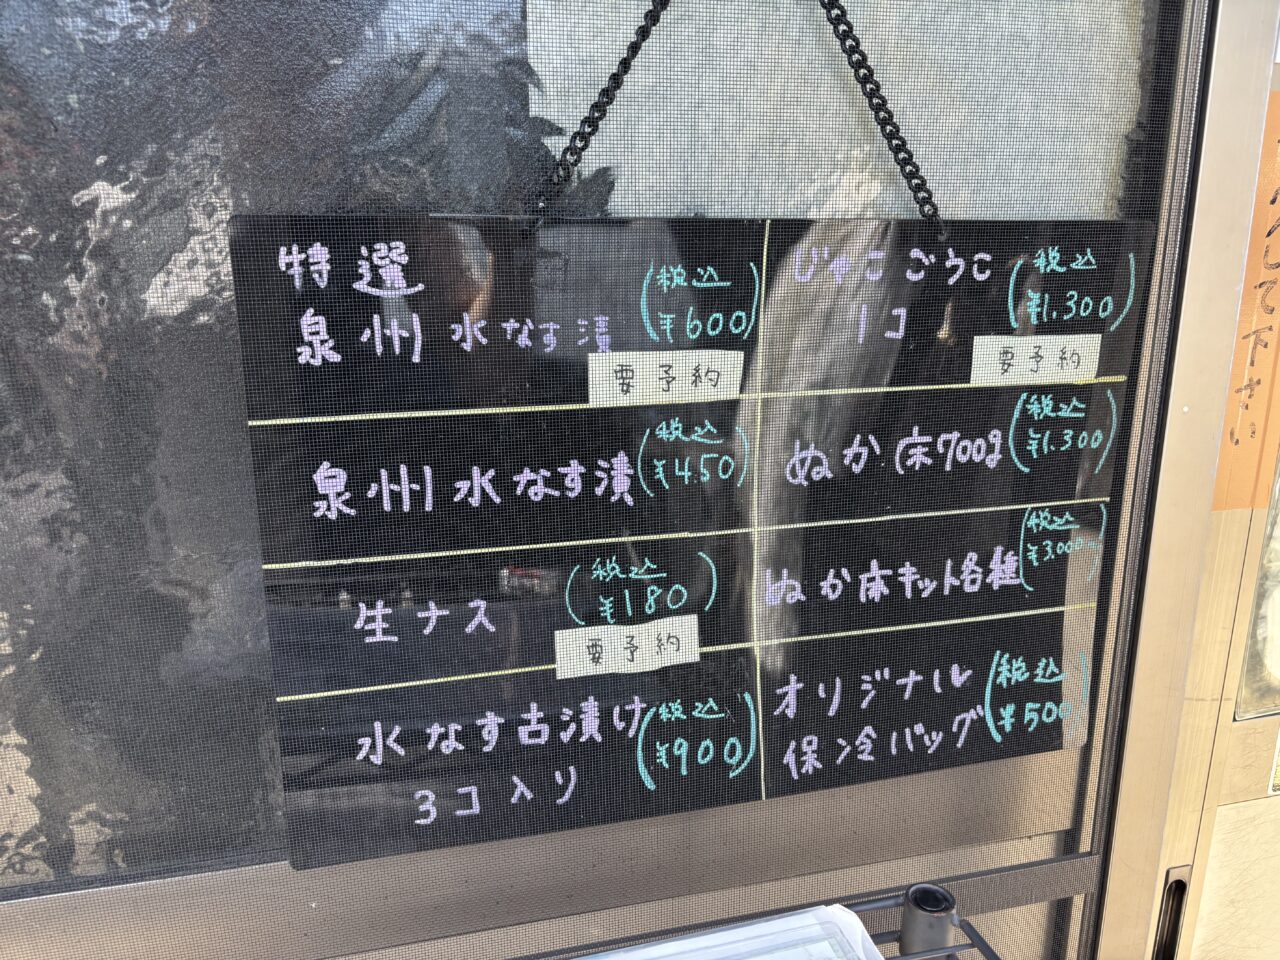 特選
泉州水なす漬
(税込
¥600)
要予約
泉州水なす漬
(税込
¥450)
生ナス
(税込
¥180)
要予約
水なす古漬け
3コ入り
(税込
¥900)
じゃこごうこ
1コ
(税込
¥1.300)
要予約
ぬか床700g
(税込
¥1.300)
ぬか床キット各種
(税込
¥3,000
オリジナル
保冷バッグ
(税込
¥500)
して下さい